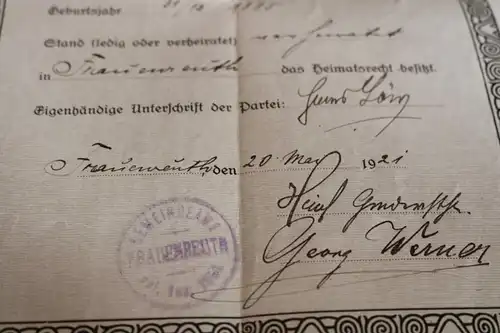 Geburtsjahr
Stand (ledig oder verheiratet) verheiratet
in Frauenreuth das Heimatsrecht besitzt.
Eigenhändige Unterschrift der Partei: Hans
Frauenreuth, den 20 Mai 1921
GEMEINDEAMT
FRAUENREUTH
Georg Werner